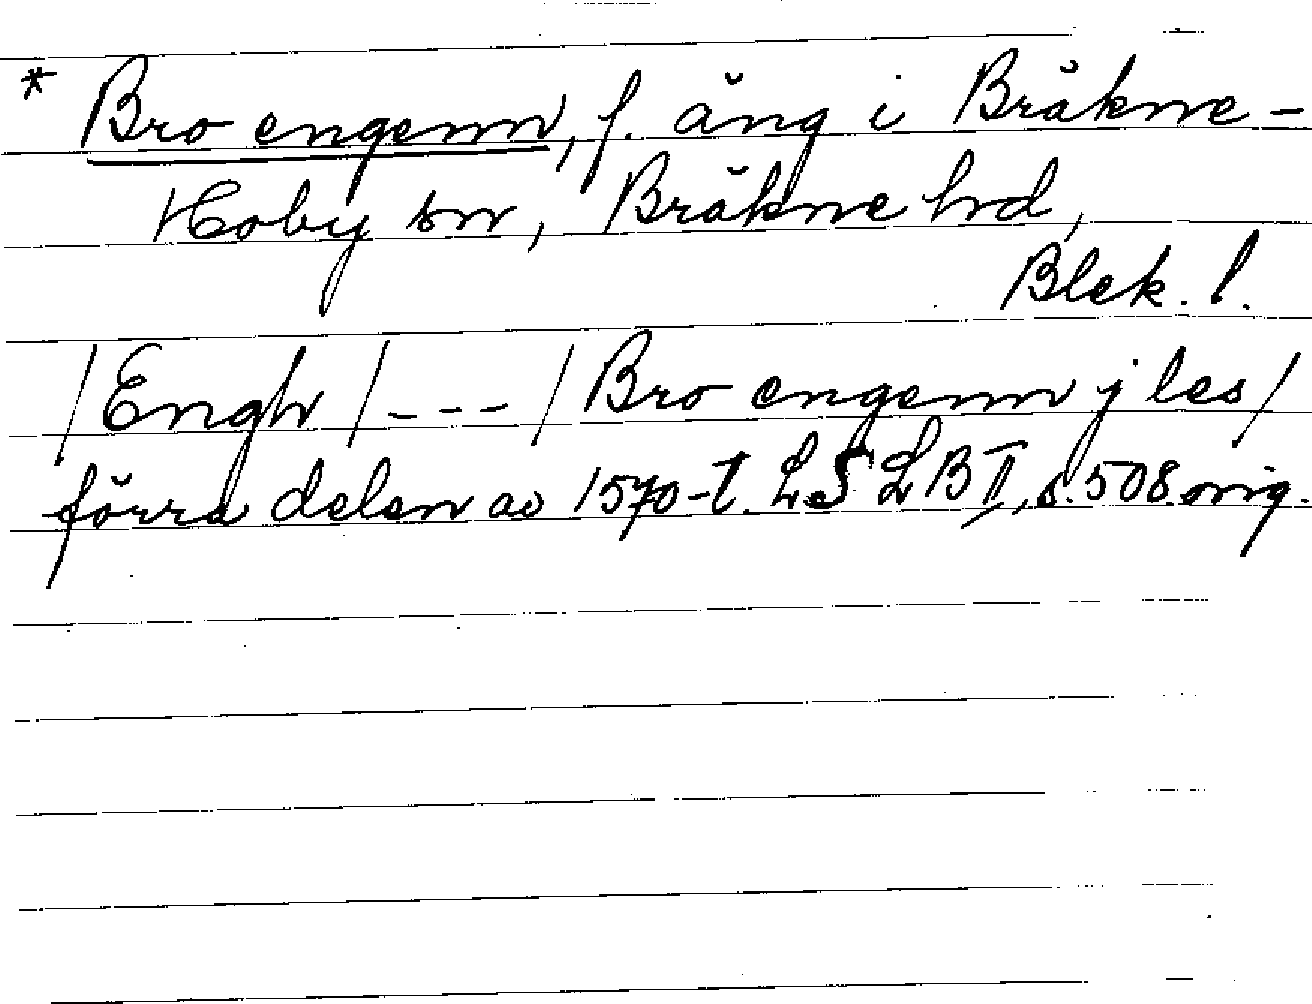 * Bro engenn, f. äng i Bräkne-
Hoby sn, Bräkne hd,
Blek. l.
/Engh/---/Bro engenn j les/
förra delen av 1570-t. LSLB II, s. 508 orig.